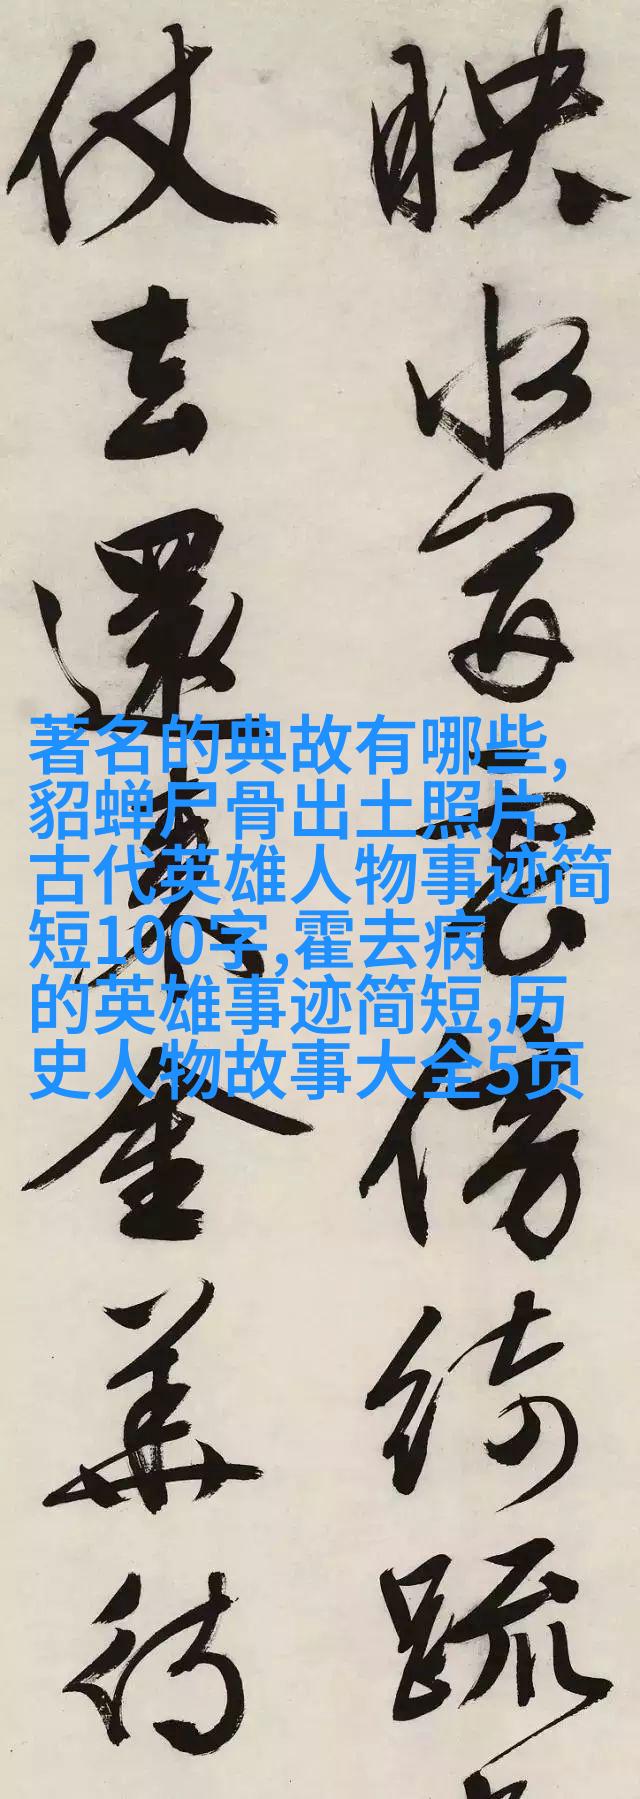 映水雲傍綺疏
仗去還金華
著名的典故有哪些,
貂蝉尸骨出土照片,
古代英雄人物事迹简
短100字,霍去病
的英雄事迹简短,历
史人物故事大全5页